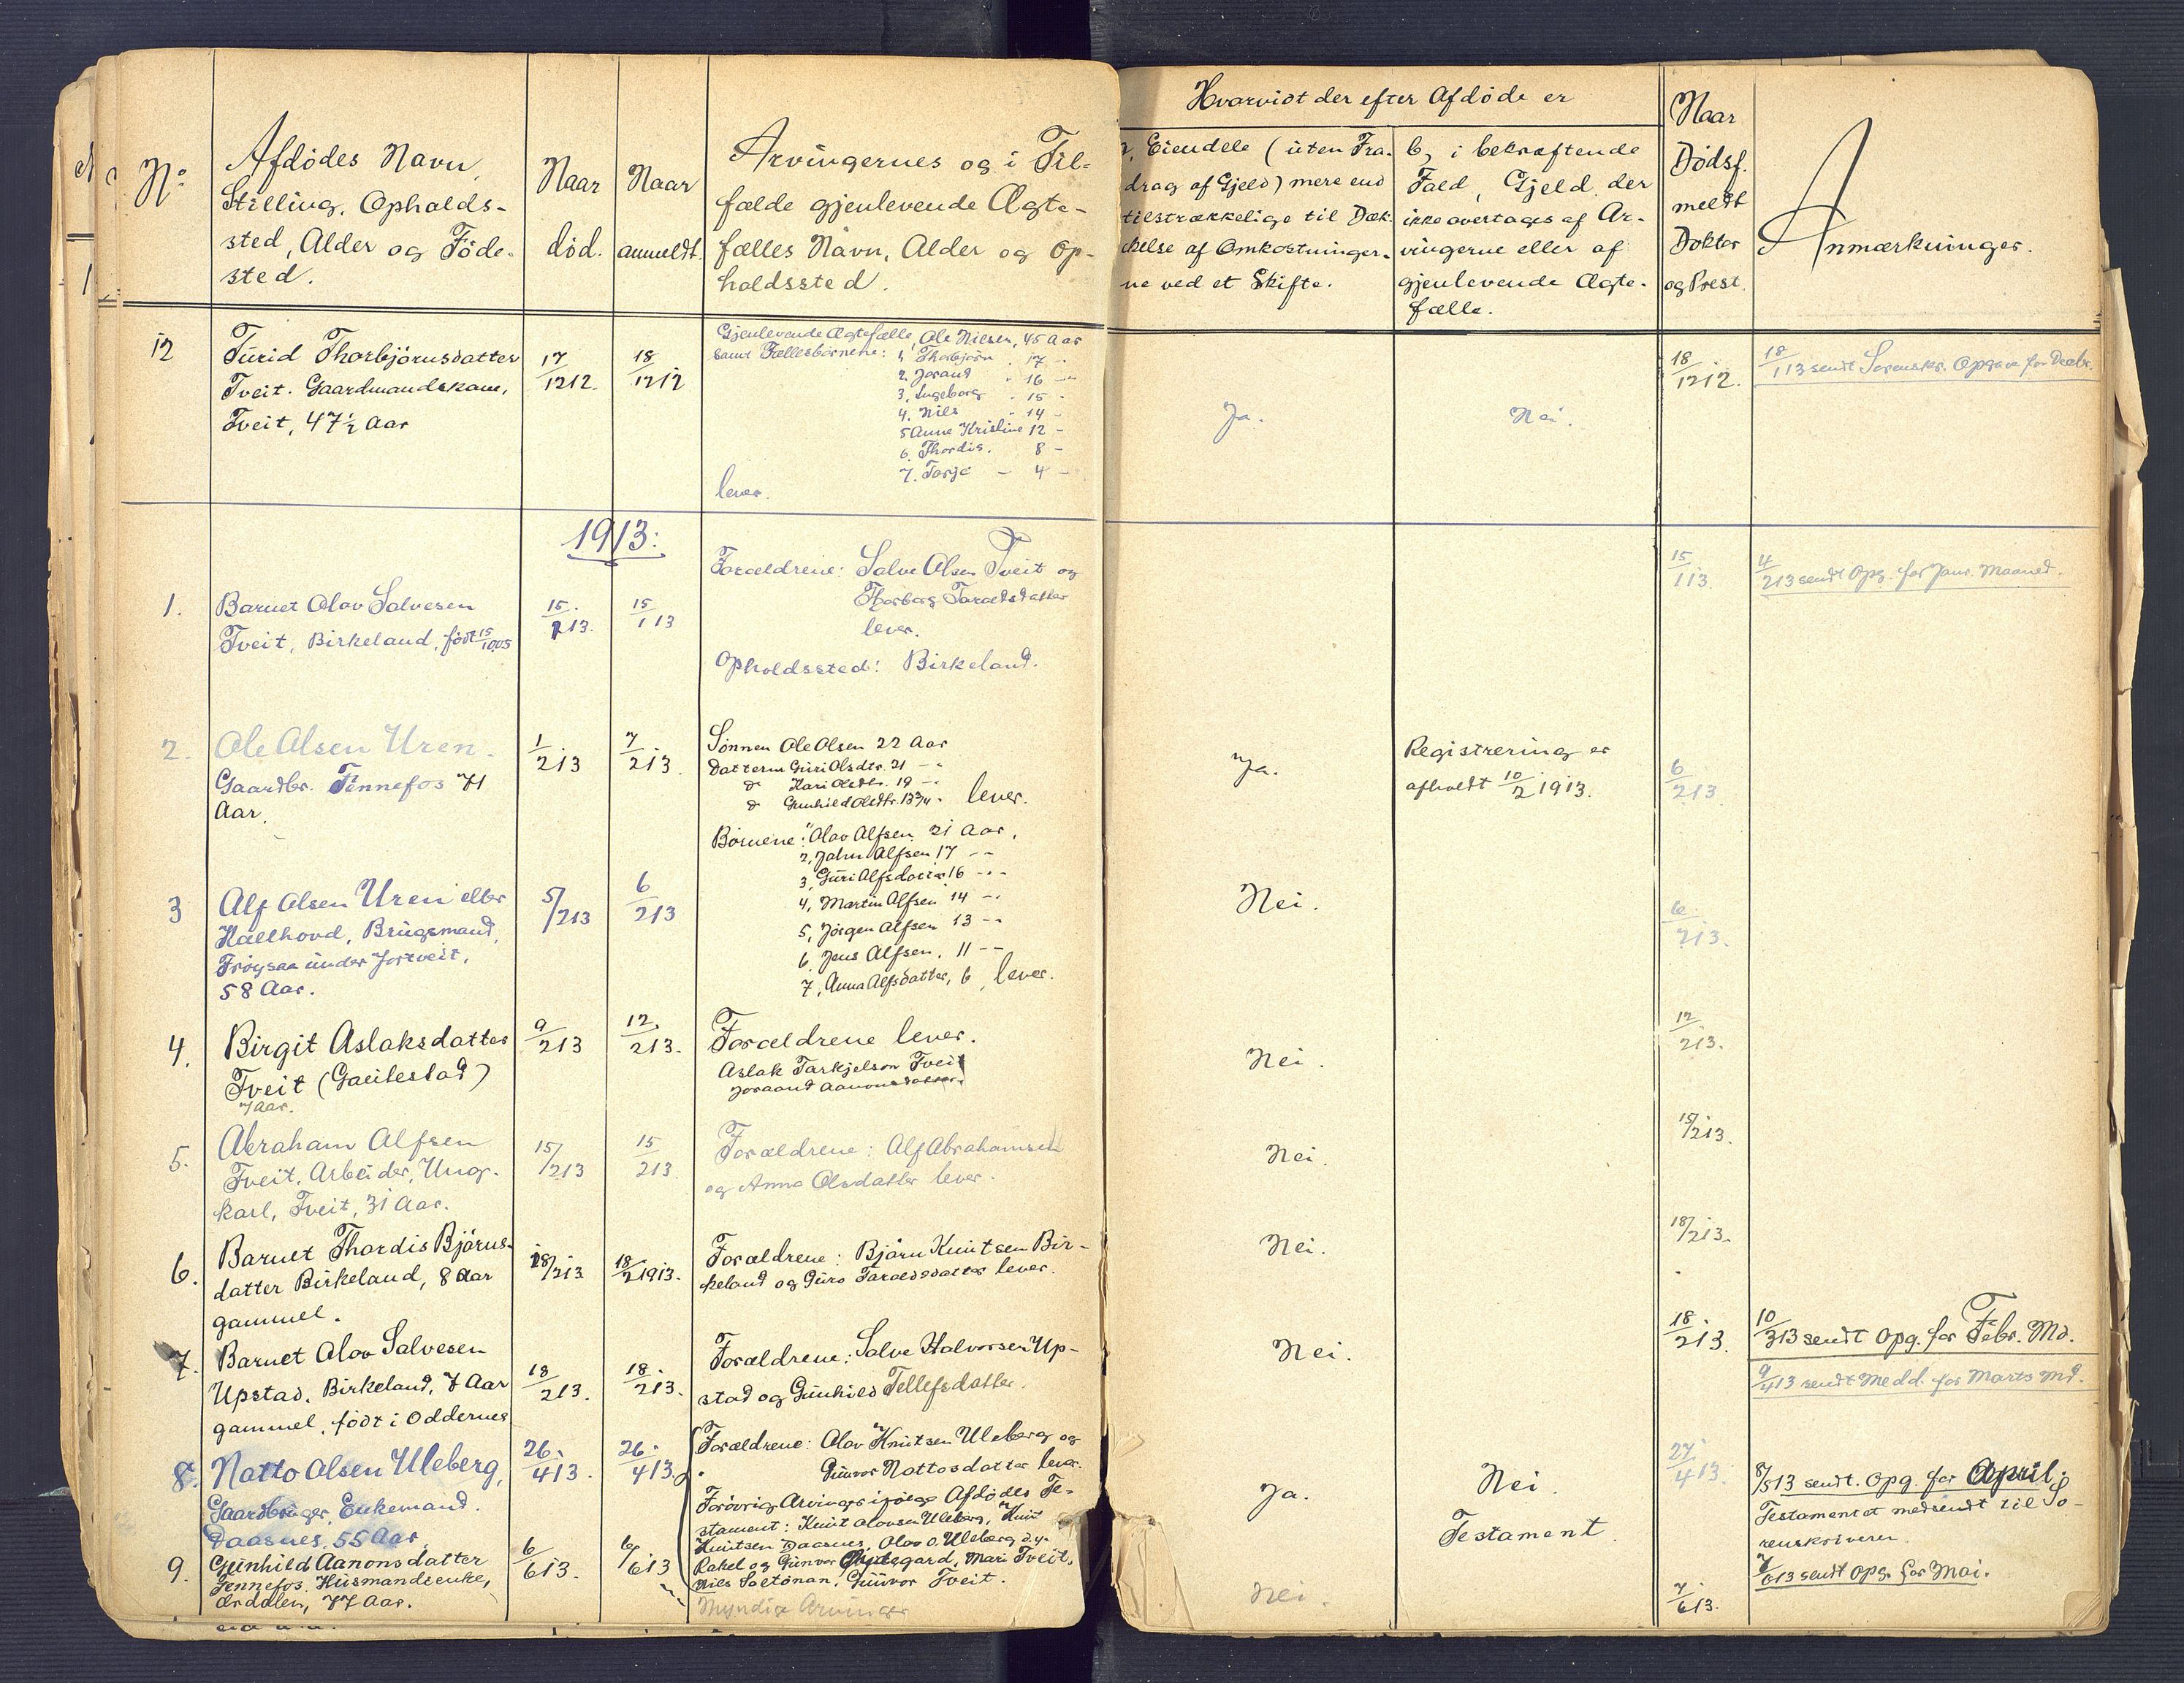 No
Afdödes Navn,
Stilling, Opholds-
sted, Alder og Föde-
sted.
Naar
död.
Naar
anmeldt.
Arvingernes og i Til-
fælde gjenlevende Ægte-
fælles Navn, Alder og Op-
holdssted.
Hvorvidt der efter Afdöde er
Eiendele (uten Fra-
drag af Gjeld) mere end
tilstrækkelige til Dæk-
kelse af Omkostninger-
ne ved et Skifte.
b, i bekræftende
Fald, Gjeld der
ikke overtages af Ar-
vingerne eller af
gjenlevende Ægte-
fælle.
Naar
Dödsf.
meldt
Doktor
og Prest.
Anmærkninger.
12
Turid Thorbjörnsdatter
Tveit. Gaardmandskone,
Tveit, 47½ Aar
17/12 12.
18/12 12
Gjenlevende Ægtefælle, Ole Nilsen, 45 Aar
samt Fællesbørnene: 1, Thorbjörn 17 -
2. Joraand - 16 -
3, Ingeborg - 15 -
4. Nils - 14 -
5 Anne Kristine 12 -
6. Thordis. 8 -
7. Torje - 4 -
lever.
Ja.
Nei.
18/12 12.
18/1 13 sendt Sorenskr. Opgave for Decbr.
1913:
1.
Barnet Olav Salvesen
Tveit, Birkeland, födt 15/10 05
15/1 13.
15/1 13
Forældrene: Salve Olsen Tveit og
Thorborg Taraldsdatter
lever.
Opholdssted: Birkeland.
15/1 13.
4/2 13 sendt Opg. for Janr. Maaned.
2.
Ole Olsen Uren.
Gaardbr. Fennefos 71
Aar.
1/2 13
7/2 13.
Sönnen Ole Olsen 22 Aar
Datteren Guri Olsdtr. 21 -
do Kari Olsdtr. 19 -
do Gunhild Olsdtr. 13¾ - lever.
Ja.
Registrering er
afholdt 10/2 1913.
6/2 13.
3
Alf Olsen Uren eller
Hallhovd, Brugsmand,
Fröysaa under Jortveit,
58 Aar.
5/2 13
6/2 13
Börnene: 1, Olav Alfsen 21 Aar.
2, John Alfsen 17 --
3, Guri Alfsdatter 16 --
4, Martin Alfsen 14 --
5, Jörgen Alfsen 13 --
6, Jens Alfsen, 11 --
7, Anna Alfsdatter, 6, lever.
Nei.
6/2 13.
4.
Birgit Aslaksdatter
Tveit (Gautestad)
7 Aar.
9/2 13
12/2 13.
Forældrene lever.
Aslak Tarkjelson Tveit
Joraand Aanonsdatter.
Nei.
12/2 13.
5.
Abraham Alfsen
Tveit, Arbeider, Ung-
karl, Tveit, 31 Aar.
15/2 13
15/2 13
Forældrene: Alf Abrahamsen
og Anne Olsdatter lever.
Nei.
15/2 13.
6.
Barnet Thordis Björns-
datter Birkeland, 8 Aar
gammel.
18/2 13
18/2 1913.
Forældrene: Björn Knutsen Bir-
keland og Guro Taraldsdatter lever.
Nei.
18/2 13.
7.
Barnet Olav Salvesen
Upstad. Birkeland, 7 Aar
gammel, födt i Oddernes
18/2 13.
18/2 13.
Forældrene: Salve Halvorsen Up-
stad og Gunhild Tellefsdatter.
Nei.
18/2 13.
10/3 13 sendt Opg. for Febr. Md.
9/4 13 sendt Medd. for Marts Md.
8.
Natto Olsen Uleberg,
Gaardbruger, Enkemand.
Daasnes, 55 Aar
26/4 13.
26/4 13.
Forældrene: Olav Knutsen Uleberg og
Gunvor Nattosdatter lever.
Forövrig Arvinger ifölge Afdödes Te-
stament: Knut Olavsen Uleberg, Knut
Knutsen Daasnes, Olav O. Uleberg d.y.
Rakel og Gunvor Rysstad, Mari Tveit,
Nils Goetonan, Gunvor Tveit.
Ja.
Nei.
Testament.
27/4 13.
8/5 13 sendt. Opg. for April.
Testamentet medsendt til So-
renskriveren
7/6 13 sendt Opg. for Mai.
9.
Gunhild Aanonsdatter
Fennefos. Husmandsenke,
Ordalen, 77 Aar.
6/6 13.
6/6 13
Myndige Arvinger
Nei.
7/6 13.